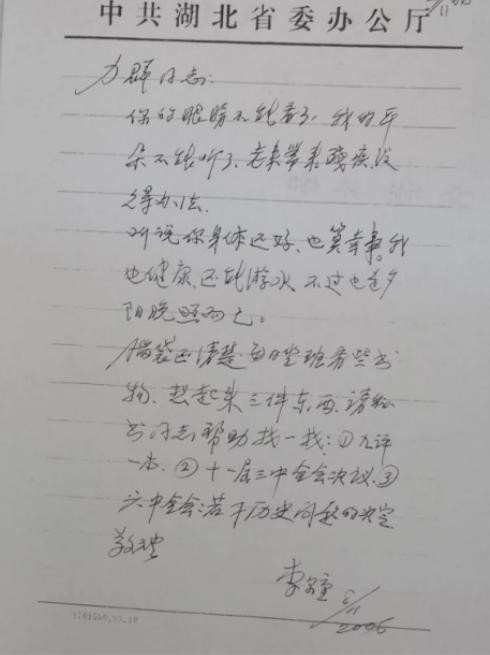 中共湖北省委办公厅
8/11 06
力群同志:
你的眼睛不能看了,我的耳
朵不能听了,老来带来残疾,没
得办法.
听说你身体还好,也算幸事。我
也健康,还能游水,不过也是夕
阳晚照而已。
脑袋还清楚,每日坐班看些书
物,想起来三件东西,请
书同志帮助找一找:①九评
一本.②十一届三中全会决议.③
六中全会:若干历史问题的决定
敬礼
李
8/11
2006
1701550.99.10